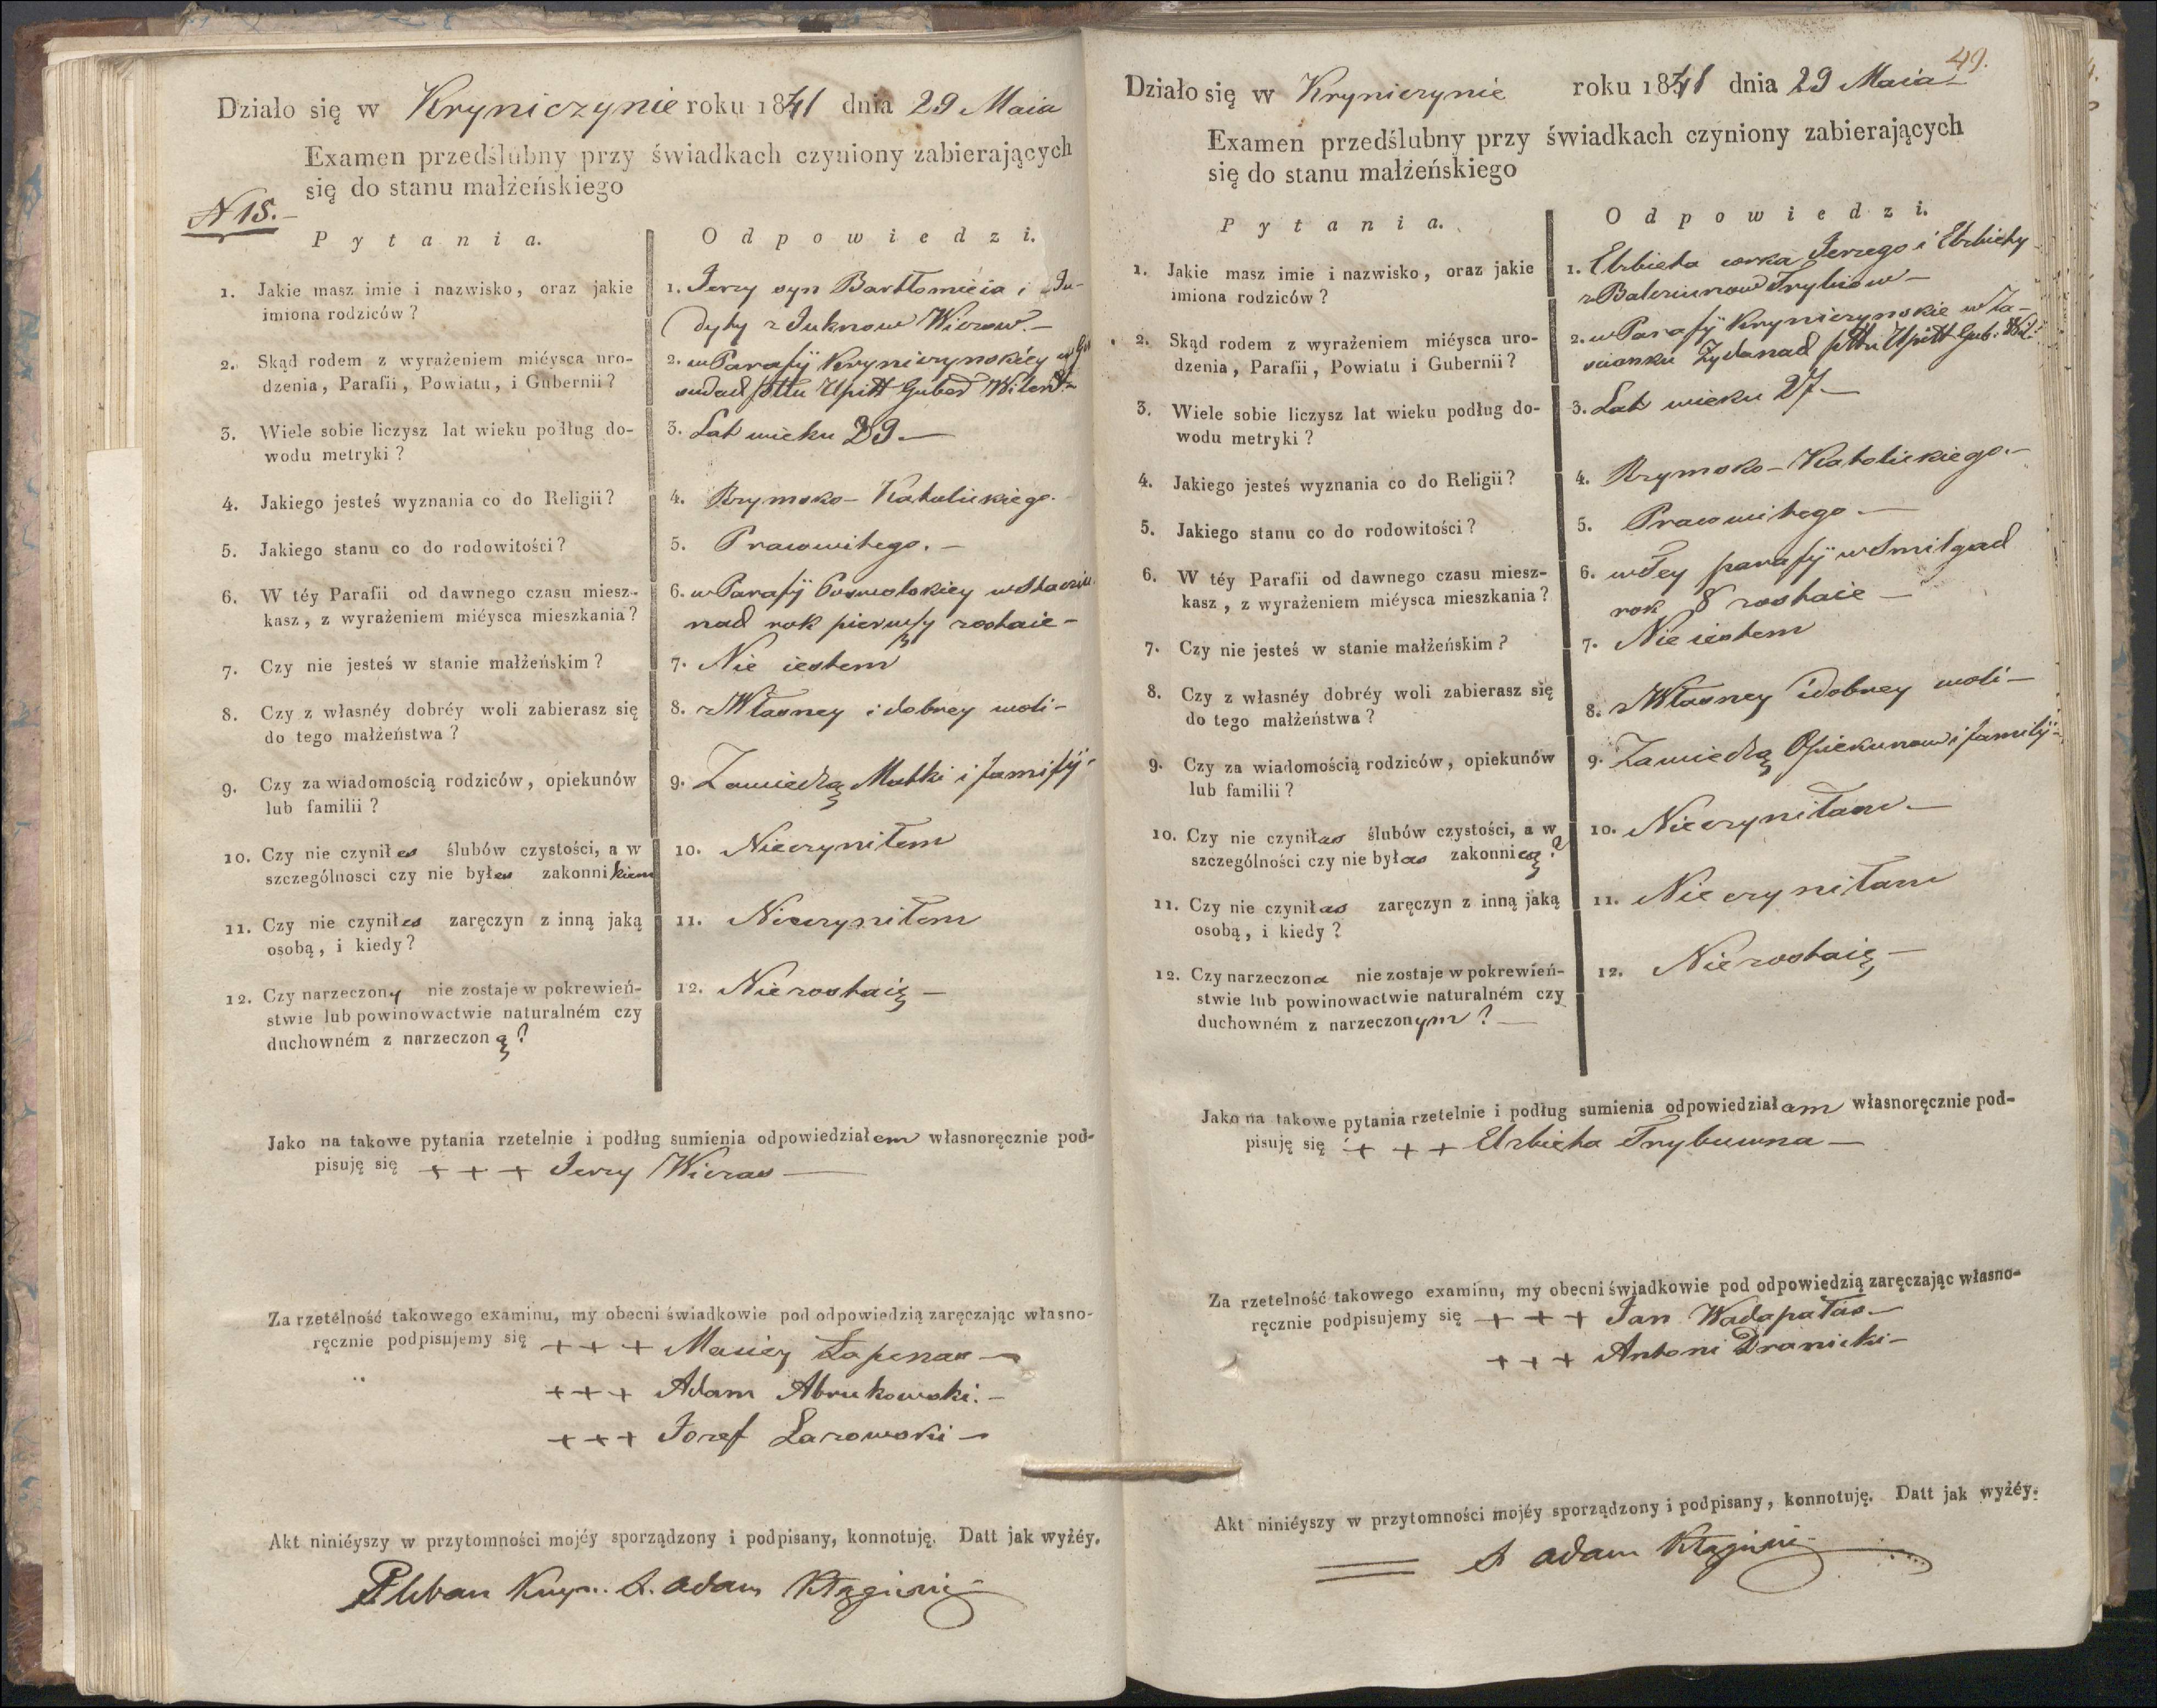 Działo się w Kryniczynie roku 1841 dnia 29 Maia
Examen przedślubny przy świadkach czyniony zabierających
się do stanu małżeńskiego
N 15.
Pytania. Odpowiedzi.
1. Jakie masz imie i nazwisko, oraz jakie
imiona rodziców?
1. Jerzy syn Bartłomieia i Ju-
dyty z Juknow Wiczow.
2. Skąd rodem z wyrażeniem miéysca uro-
dzenia, Parafii, Powiatu, i Gubernii?
2. w Parafij Kryniczynskiey w
Pttu Upitt Guber Wilen
3. Wiele sobie liczysz lat wieku podług do-
wodu metryki?
3. Lat wieku 29.
4. Jakiego jesteś wyznania co do Religii?
4. Rzymsko-Katolickiego.
5. Jakiego stanu co do rodowitości?
5. Prawowitego.
6. W téy Parafii od dawnego czasu miesz-
kasz, z wyrażeniem miéysca mieszkania?
6. w Parafij Poswolskiey w
nad rok pierwszy zostaie
7. Czy nie jesteś w stanie małżeńskim?
7. Nie iestem
8. Czy z własnéy dobréy woli zabierasz się
do tego małżeństwa?
8. z Własney i dobrey woli
9. Czy za wiadomością rodziców, opiekunów
lub familii?
9. Zawiedzą Matki i familij
10. Czy nie czyniłes ślubów czystości, a w
szczególnosci czy nie byłes zakonnikiem
10. Nieczyniłem
11. Czy nie czyniłes zaręczyn z inną jaką
osobą, i kiedy?
11. Nieczyniłem
12. Czy narzeczony nie zostaje w pokrewień-
stwie lub powinowactwie naturalném czy
duchowném z narzeczoną?
12. Niezostaię
Jako na takowe pytania rzetelnie i podług sumienia odpowiedziałem własnoręcznie pod-
pisuję się + + + Jerzy Wiczas
Za rzetélność takowego examinu, my obecni świadkowie pod odpowiedzią zaręczając własno-
ręcznie podpisujemy się + + + Maciey Łapenas
+ + + Adam Abrukowski.
+ + + Jozef Lazowski
Akt niniéyszy w przytomności mojéy sporządzony i podpisany, konnotuję. Datt jak wyźéy.
Pleban Kryn. X. Adam
49.
Działo się w Kryniczynie roku 1841 dnia 29 Maia
Examen przedślubny przy świadkach czyniony zabierających
się do stanu małżeńskiego
Pytania. Odpowiedzi.
1. Jakie masz imie i nazwisko, oraz jakie
imiona rodziców?
1. Elzbieta corka Jerzego i Elzbiety
z Balcziunow Trybiow
2. Skąd rodem z wyrażeniem miéysca uro-
dzenia, Parafii, Powiatu i Gubernii?
2. w Parafij Kryniczynskie w Za-
scianku Zydanad Pttu Upitt Gub. Wil.
3. Wiele sobie liczysz lat wieku podług do-
wodu metryki?
3. Lat wieku 27
4. Jakiego jesteś wyznania co do Religii?
4. Rzymsko-Katolickiego.
5. Jakiego stanu co do rodowitości?
5. Prawowitego
6. W téy Parafii od dawnego czasu miesz-
kasz, z wyrażeniem miéysca mieszkania?
6. w Tey parafij w Smilgad
rok 8 zostaie
7. Czy nie jesteś w stanie małżeńskim?
7. Nie iestem
8. Czy z własnéy dobréy woli zabierasz się
do tego małżeństwa?
8. z Własney i dobrey woli
9. Czy za wiadomością rodziców, opiekunów
lub familii?
9. Zawiedzą Opiekunow i familij
10. Czy nie czyniłas ślubów czystości, a w
szczególności czy nie byłas zakonnicą?
10. Nieczyniłam
11. Czy nie czyniłas zaręczyn z inną jaką
osobą, i kiedy?
11. Nieczyniłam
12. Czy narzeczona nie zostaje w pokrewień-
stwie lub powinowactwie naturalném czy
duchowném z narzeczonym?
12. Niezostaię
Jako na takowe pytania rzetelnie i podług sumienia odpowiedziałam własnoręcznie pod-
pisuję się + + + Elzbieta Trybuwna
Za rzetelność takowego examinu, my obecni świadkowie pod odpowiedzią zaręczając własno-
ręcznie podpisujemy się + + + Jan Wadapałas
+ + + Antoni Dranicki
Akt niniéyszy w przytomności mojéy sporządzony i podpisany, konnotuję. Datt jak wyźéy.
X Adam